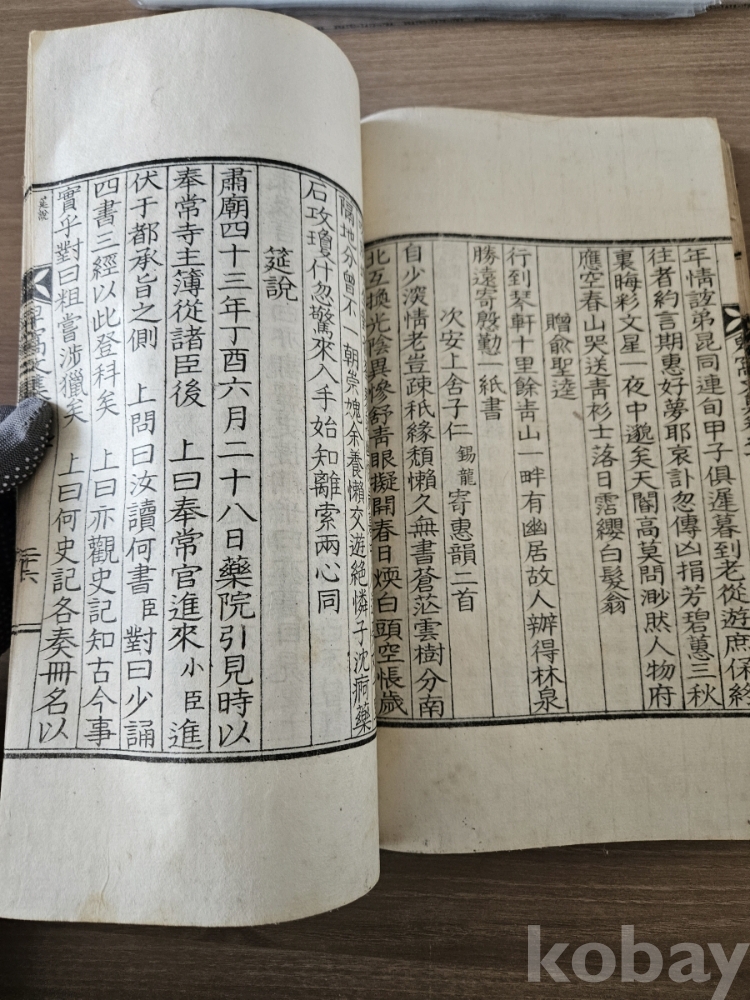 年情該弟昆同連旬甲子俱遲暮到老從遊庶保終
往者約言期惠好夢耶哀訃忽傳凶捐芳碧蕙三秋
裏晦彩文星一夜中邈矣天閽高莫問渺然人物府
應空春山哭送靑衫士落日霑纓白髮翁
贈兪聖逵
行到琹軒十里餘靑山一畔有幽居故人辦得林泉
勝遠寄慇懃一紙書
次安上舍子仁錫龍寄惠韻二首
自少淡情老豈疎秪緣頹懶久無書蒼茫雲樹分南
北互換光陰異慘舒靑眼擬開春日煥白頭空悵歲
隔地分曾不一朝崇媿余養懶交遊絶憐子沈痾藥
石攻瓊什忽驚來入手始知離索兩心同
筵說
肅廟四十三年丁酉六月二十八日藥院引見時以
奉常寺主簿從諸臣後 上曰奉常官進來小臣進
伏于都承旨之側 上問曰汝讀何書臣對曰少誦
四書三經以此登科矣 上曰亦觀史記知古今事
實乎對曰粗嘗涉獵矣 上曰何史記各奏冊名以
筵說
窩文集
二十六
kobay